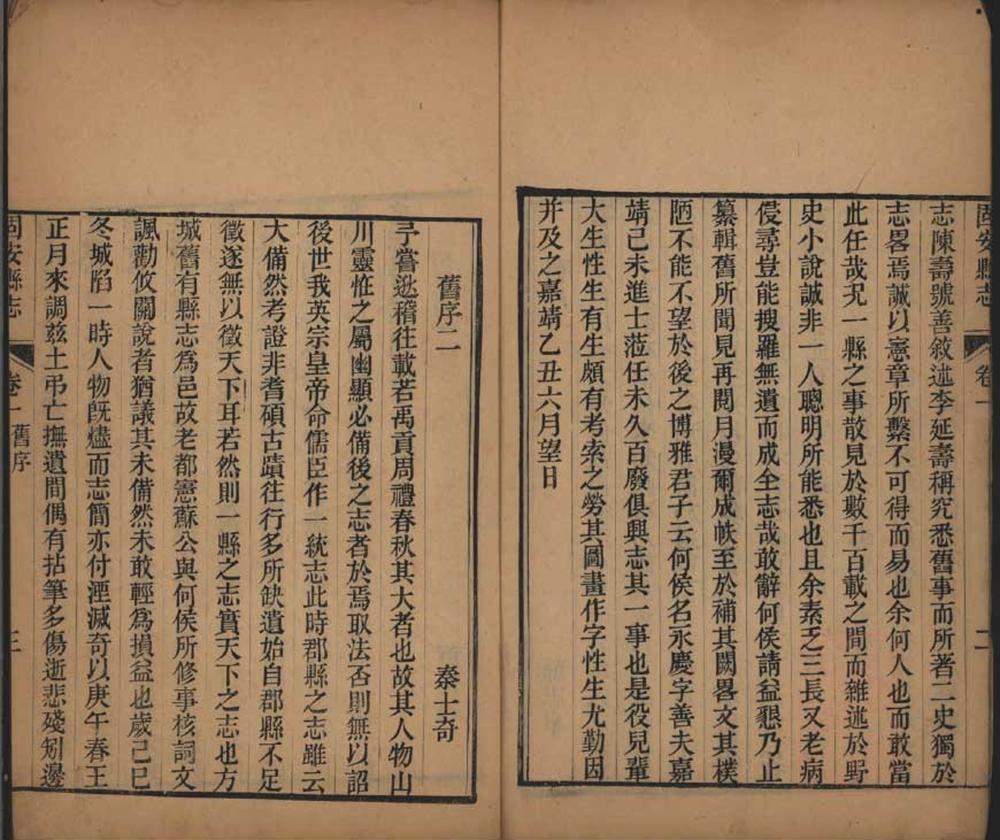 固安縣志
卷一
二
志陳壽號善敘述李延壽稱究悉舊事而所著二史獨於
志畧焉誠以憲章所繫不可得而易也余何人也而敢當
此任哉况一縣之事散見於數千百載之間而雜述於野
史小說誠非一人聰明所能悉也且余素乏三長又老病
侵尋豈能搜羅無遺而成全志哉敢辭何侯請益懇乃止
纂輯舊所聞見再閱月漫爾成帙至於補其闕畧文其樸
陋不能不望於後之博雅君子云何侯名永慶字善夫嘉
靖己未進士蒞任未久百廢俱興志其一事也是役兒輩
大生性生有生頗有考索之勞其圖畫作字性生尤勤因
并及之嘉靖乙丑六月望日
舊序二
秦士奇
予嘗逖稽往載若禹貢周禮春秋其大者也故其人物山
川靈恠之屬幽顯必備後之志者於焉取法否則無以詔
後世我英宗皇帝命儒臣作一統志此時郡縣之志雖云
大備然考證非耆碩古蹟往行多所缺遺始自郡縣不足
徵遂無以徵天下耳若然則一縣之志實天下之志也方
城舊有縣志為邑故老都憲蘇公與何侯所修事核詞文
諷勸攸關說者猶議其未備然未敢輕為損益也歲己巳
冬城陷一時人物旣燼而志簡亦付湮滅奇以庚午春王
正月來調茲土弔亡撫遺間偶有拈筆多傷逝悲殘矧邊
固安縣志
卷一舊序
三